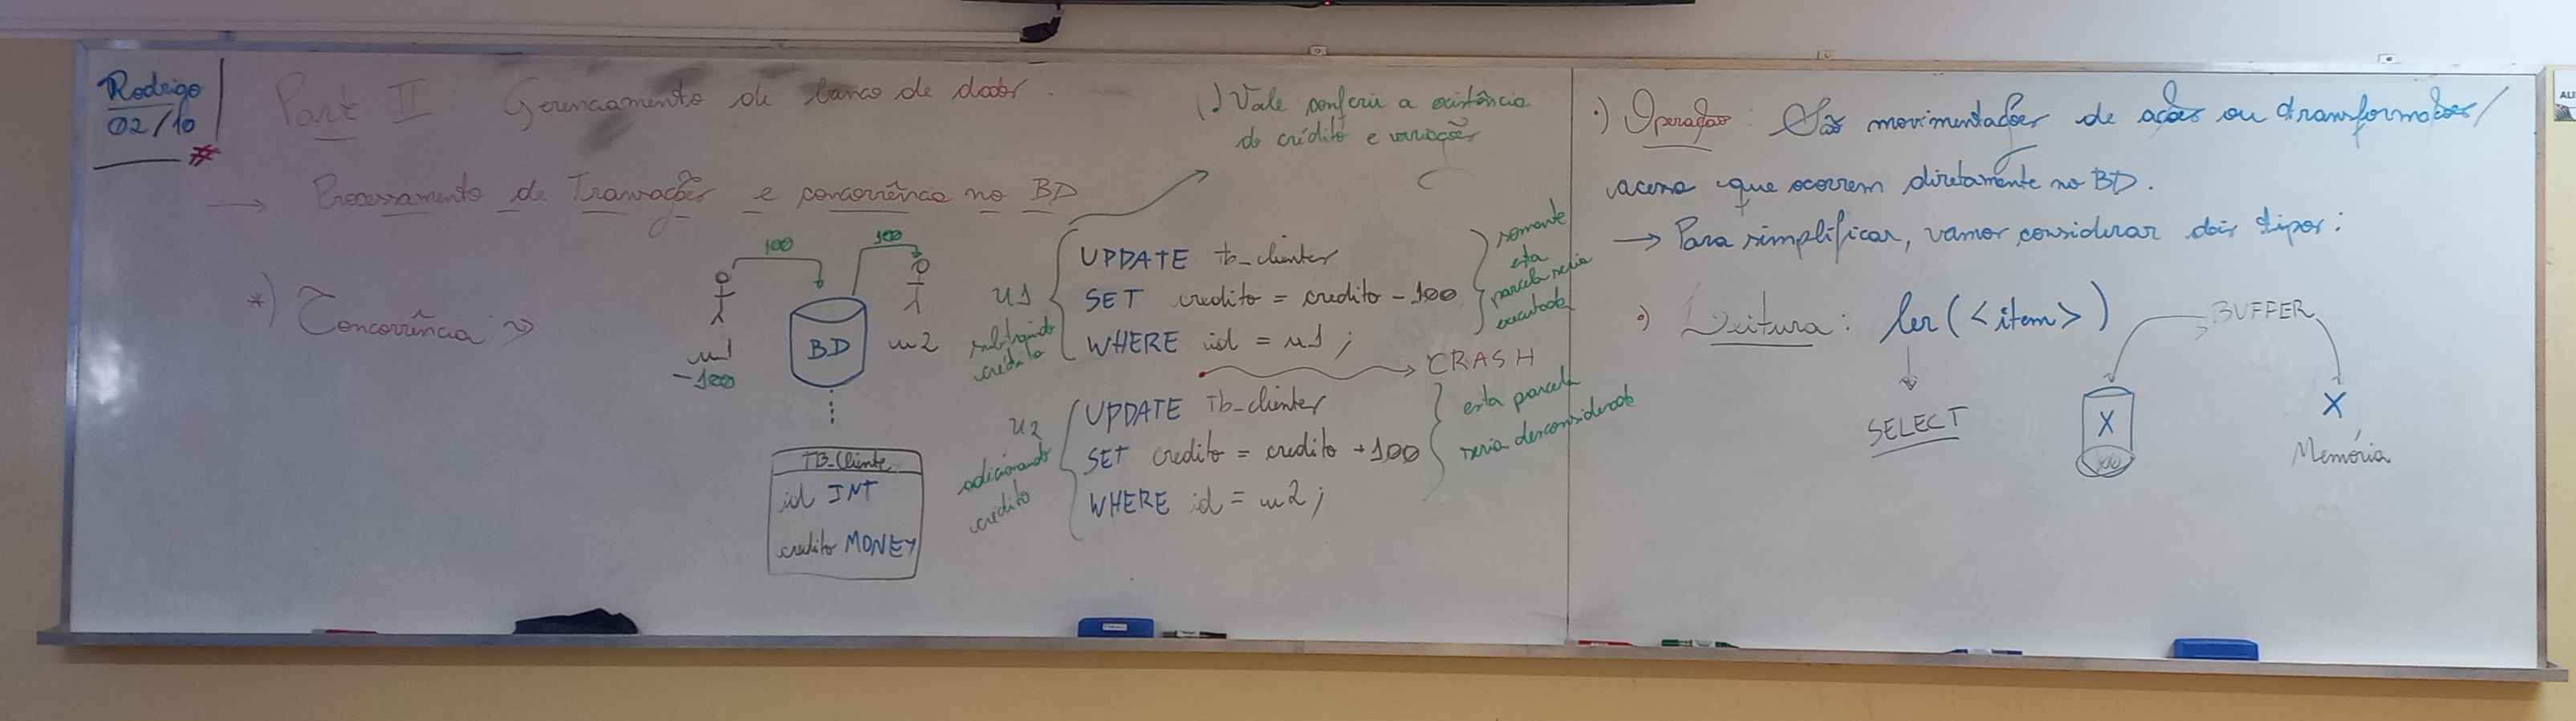 Rodrigo
02/10
#
Parte II: Gerenciamento de banco de dados.
→ Processamento de Transações e concorrência no BD
*) Concorrência:
100
100
u1
-100
BD
u2
TB_Cliente
id INT
credito MONEY
Vale conferir a existência
de crédito e variações
u1
subtraindo
crédito
UPDATE tb_clientes
SET credito = credito - 100
WHERE id = u1;
somente
esta
parcela seria
executada
CRASH
u2
adicionando
crédito
UPDATE Tb_clientes
SET credito = credito + 100
WHERE id = u2;
esta parcela
seria desconsiderada
•) Operação: São movimentações de ações ou transformações/
acesso que ocorrem diretamente no BD.
→ Para simplificar, vamos considerar dois tipos:
•) Leitura: ler(<item>)
SELECT
BUFFER
X
X
Memória